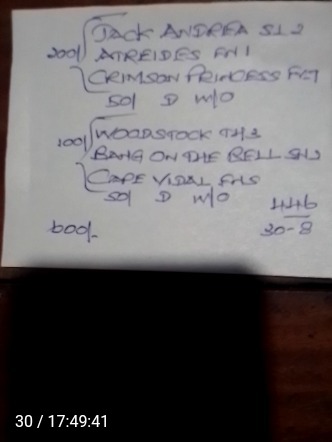 JACK ANDREA S1 2
200/ ATREIDES FN 1
CRIMSON PRINCESS
50/ D W/O
100/ WOODSTOCK TH 3
BANG ON THE BELL SH 3
CAPE VIDAL FHS
50/ D W/O
446
600/- 30-8
30 / 17:49:41